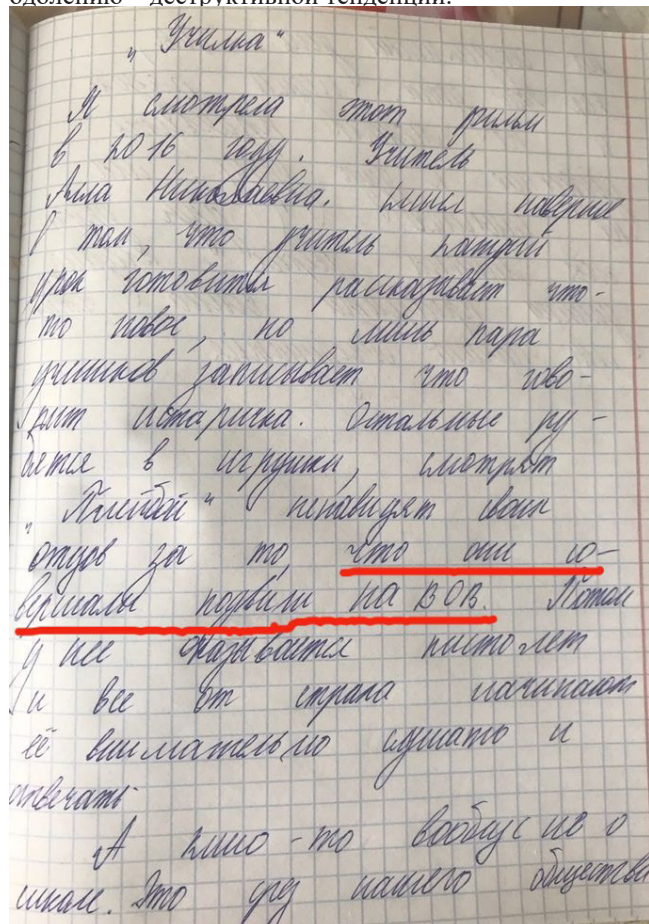 одолению – деструктивной тенденции.
„Училка“
Я смотрела этот фильм
в 2016 году. Учитель
Алла Николаевна. Смысл наверное
в том, что учитель каждый
урок готовится рассказывает что-
то новое, но лишь пара
учеников записывает что гово-
рит историчка. Остальные ру-
бятся в игрушки, смотрят
„Плейбой“ ненавидят своих
отцов за то, что они со-
вершали подвиги на ВОВ. Потом
у нее оказывается пистолет
и все от страха начинают
её внимательно слушать и
отвечать.
А кино-то вообще не о
школе. Это срез нашего общества